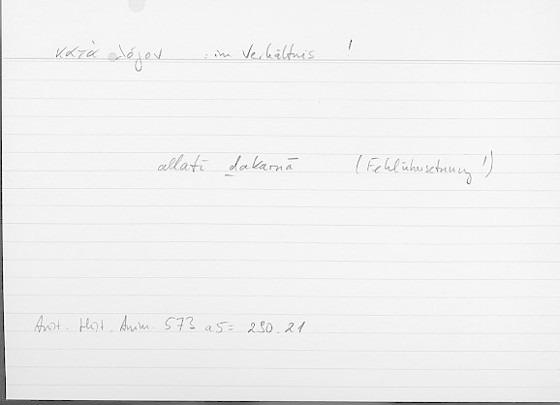 κατὰ λόγον : im Verhältnis !
allatī ḏakarnā (Fehlübersetzung!)
Arist. Hist. Anim. 573 a5 = 230.21